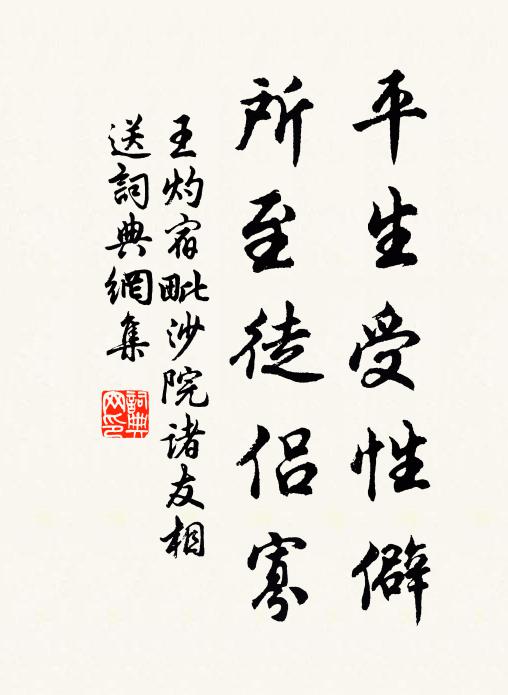 平生受性僻
所至徒侣寡
王灼宿毗沙院诸友相
送詞典網集
詞典
网印